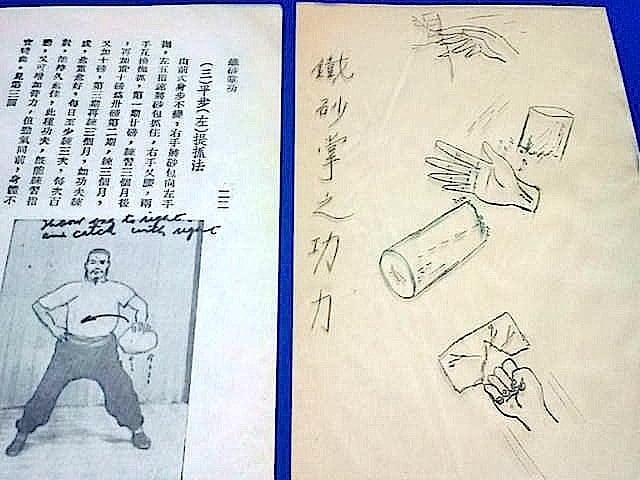 鐵砂掌功
二二
(三)平步(左)提抓法
由前式身步不變,右手將砂包向左手
拋,左五指速將砂包抓住,右手叉腰,兩
手互換拋抓,第一期廿磅,練習三個月後
再加重十磅爲卅磅第二期,練三個月,
又加十磅,第三期再練三個月,如功夫練
成,愈重愈好,每日至少練三次,每次百
數,能持久愈佳,此種功夫,既能練習指
勁,又可增加臂力,但勁氣同前,身體不
宜彎曲,見第三圖
throw bag to right
and catch with right
鐵砂掌之功力